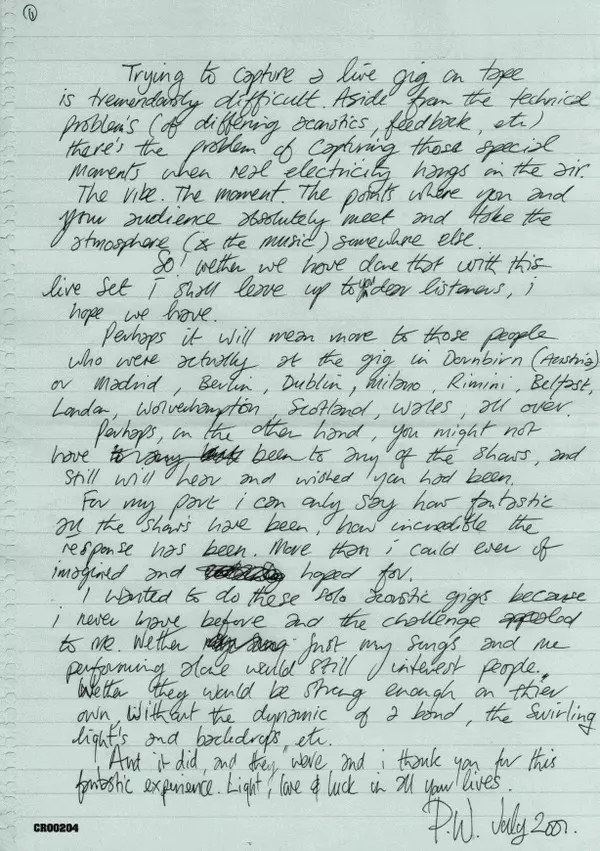 ①
Trying to capture a live gig on tape
is tremendously difficult. Aside from the technical
problem's (of differing acoustics, feedback, etc)
there's the problem of capturing those special
moments when real electricity hangs in the air.
The vibe. The moment. The points where you and
your audience absolutely meet and take the
atmosphere (& the music) somewhere else.
So! wether we have done that with this
live set I shall leave up to you dear listeners, i
hope we have.
Perhaps it will mean more to those people
who were actually at the gig in Dornbirn (Austria)
or Madrid, Berlin, Dublin, Milano, Rimini, Belfast,
London, Wolverhampton, Scotland, Wales, all over.
Perhaps, on the other hand, you might not
have been to any of the shows, and
still will hear and wished you had been.
For my part i can only say how fantastic
all the shows have been, how incredible the
response has been. More than i could ever of
imagined and hoped for.
I wanted to do these solo acoustic gigs because
i never have before and the challenge appealed
to me. Wether just my songs and me
performing alone would still interest people.
Wether they would be strong enough on thier
own, without the dynamic of a band, the swirling
light's and backdrops, etc.
And it did, and they were, and i thank you for this
fantastic experience. Light, love & luck in all your lives.
P.W. July 2001.
CR00204